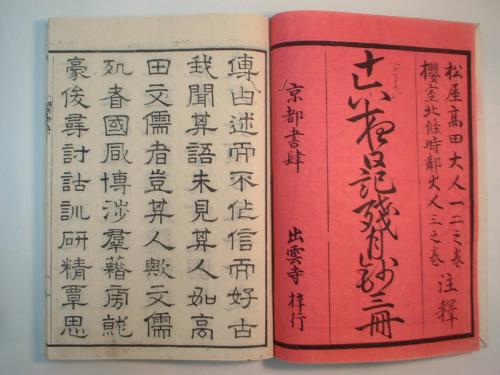 松屋高田大人一二之巻
櫻室北條時鄰大人三之巻
注釋
十六夜日記殘月鈔三冊
京都書肆
出雲寺梓行
傳曰述而不作信而好古
我聞其語未見其人如高
田文儒者豈其人歟文儒
夙眷國風博涉羣籍旁能
豪俊尋討詁訓研精覃思